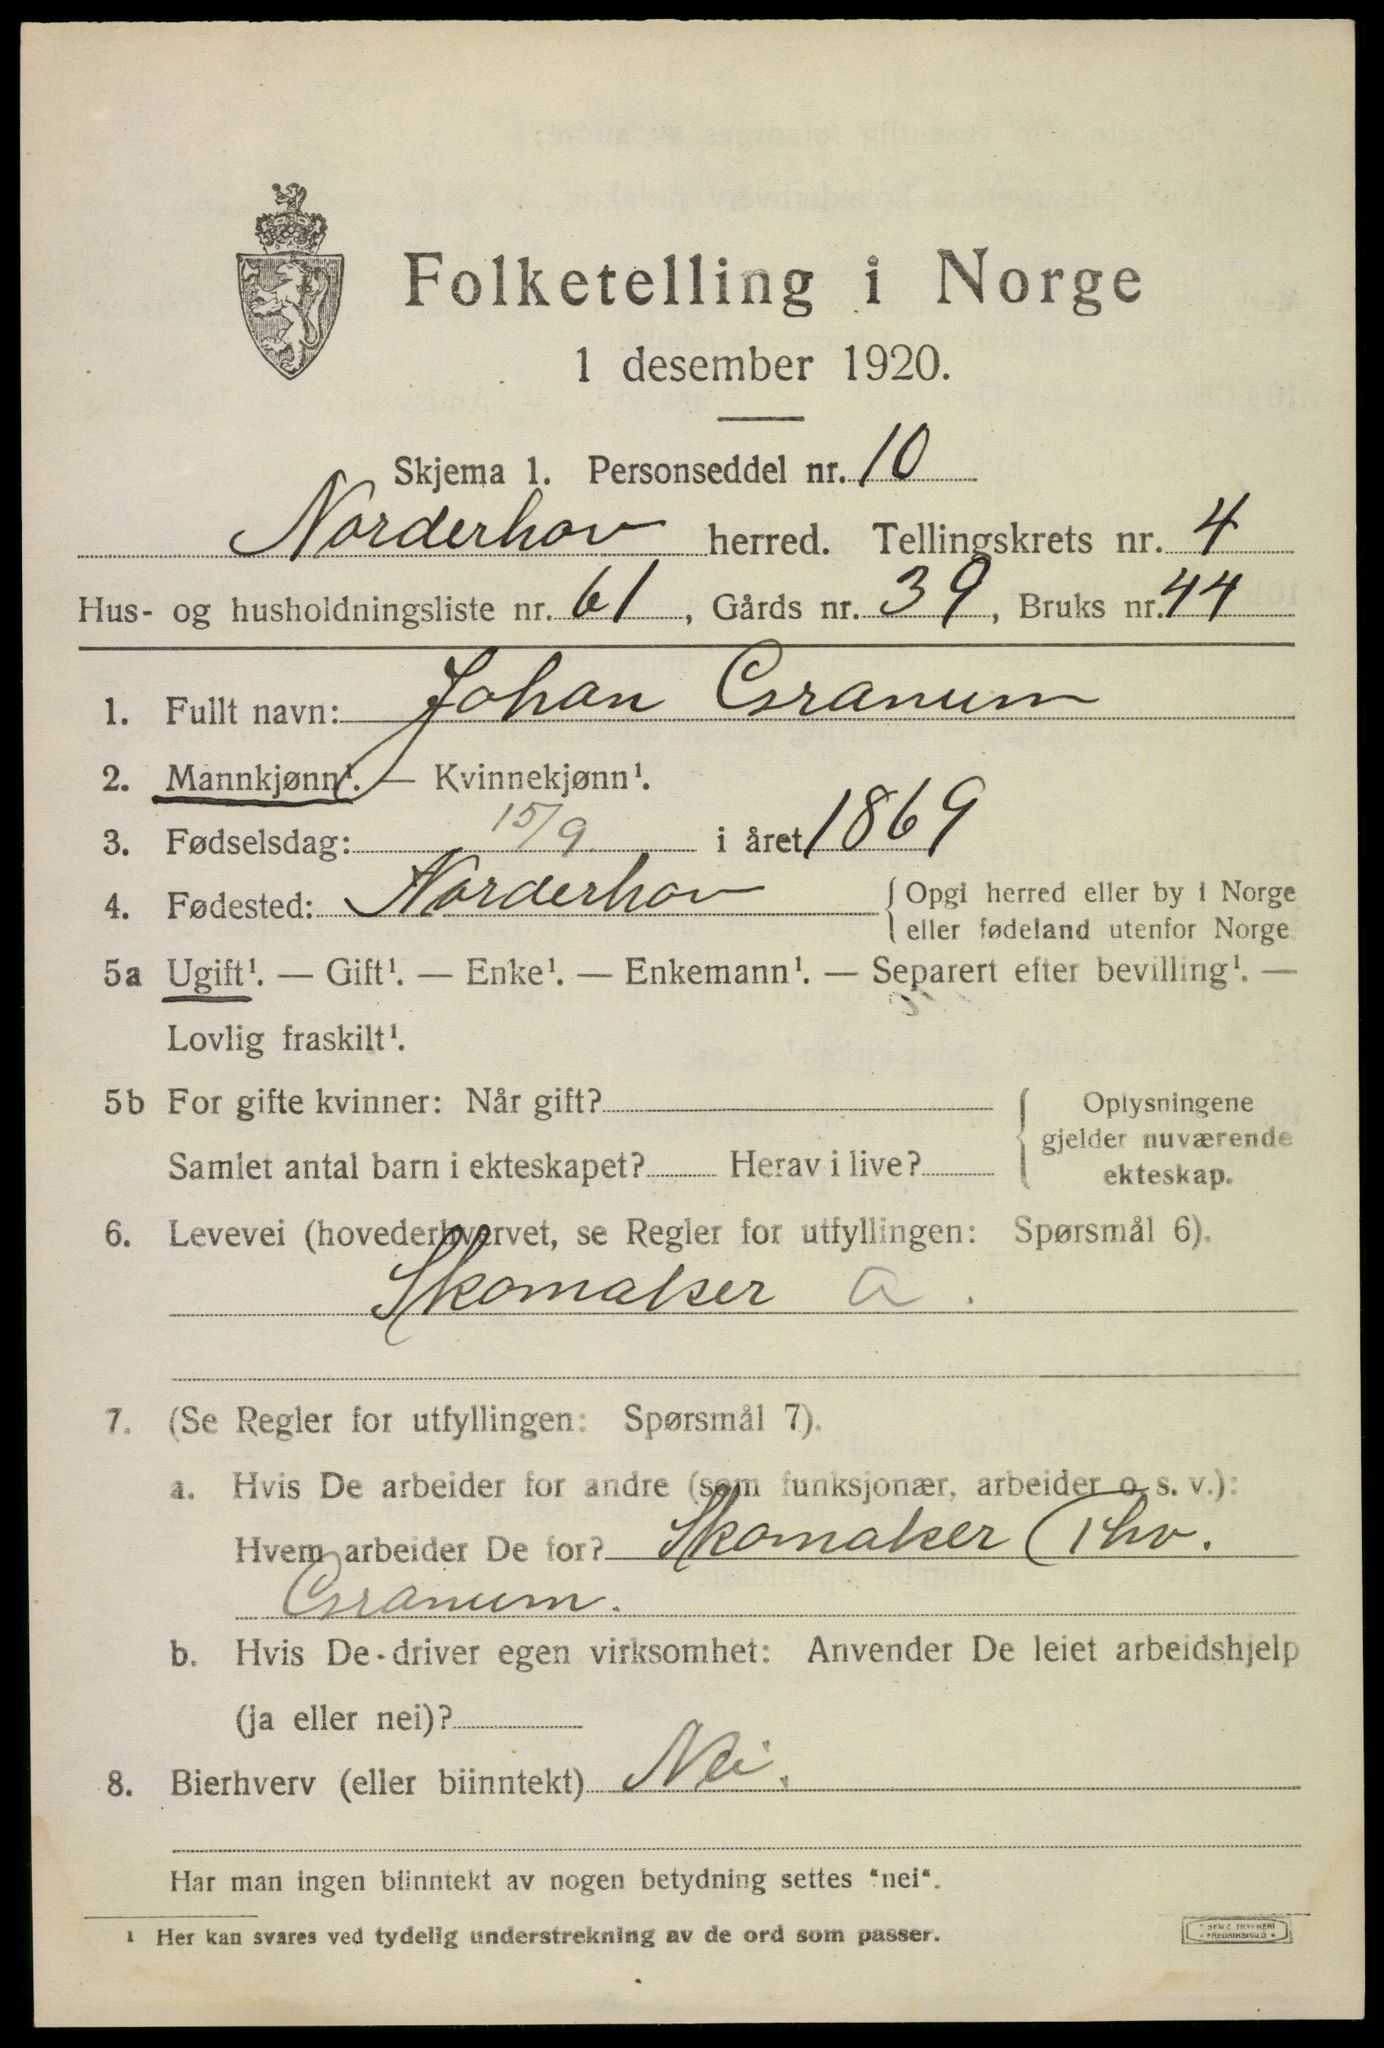 Folketelling i Norge
1 desember 1920.
Skjema 1. Personseddel nr. 10
Norderhov herred. Tellingskrets nr. 4
Hus- og husholdningsliste nr. 61, Gårds nr. 39, Bruks nr. 44
1. Fullt navn: Johan Granum
2. Mannkjønn¹. — Kvinnekjønn¹.
3. Fødselsdag: 15/9. i året 1869
4. Fødested: Norderhov {Opgi herred eller by i Norge
eller fødeland utenfor Norge
5a Ugift¹. — Gift¹. — Enke¹. — Enkemann¹. — Separert efter bevilling¹. —
Lovlig fraskilt¹.
5b For gifte kvinner: Når gift?
Samlet antal barn i ekteskapet? Herav i live?
Oplysningene
gjelder nuværende
ekteskap.
6. Levevei (hovederhvervet, se Regler for utfyllingen: Spørsmål 6).
Skomaker a.
7. (Se Regler for utfyllingen: Spørsmål 7).
a. Hvis De arbeider for andre (som funksjonær, arbeider o. s. v.):
Hvem arbeider De for? Skomaker Thv.
Granum.
b. Hvis De driver egen virksomhet: Anvender De leiet arbeidshjelp
(ja eller nei)?
8. Bierhverv (eller biinntekt) Nei.
Har man ingen biinntekt av nogen betydning settes "nei".
¹ Her kan svares ved tydelig understrekning av de ord som passer.